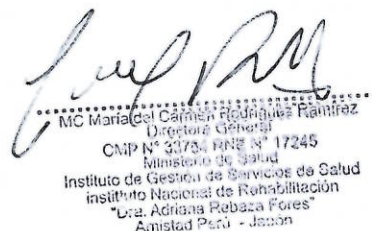 MC María del Carmen Rodríguez Ramírez
Directora General
CMP N° 33754 RNE N° 17245
Ministerio de Salud
Instituto de Gestión de Servicios de Salud
Instituto Nacional de Rehabilitación
"Dra. Adriana Rebaza Flores"
Amistad Perú - Japón